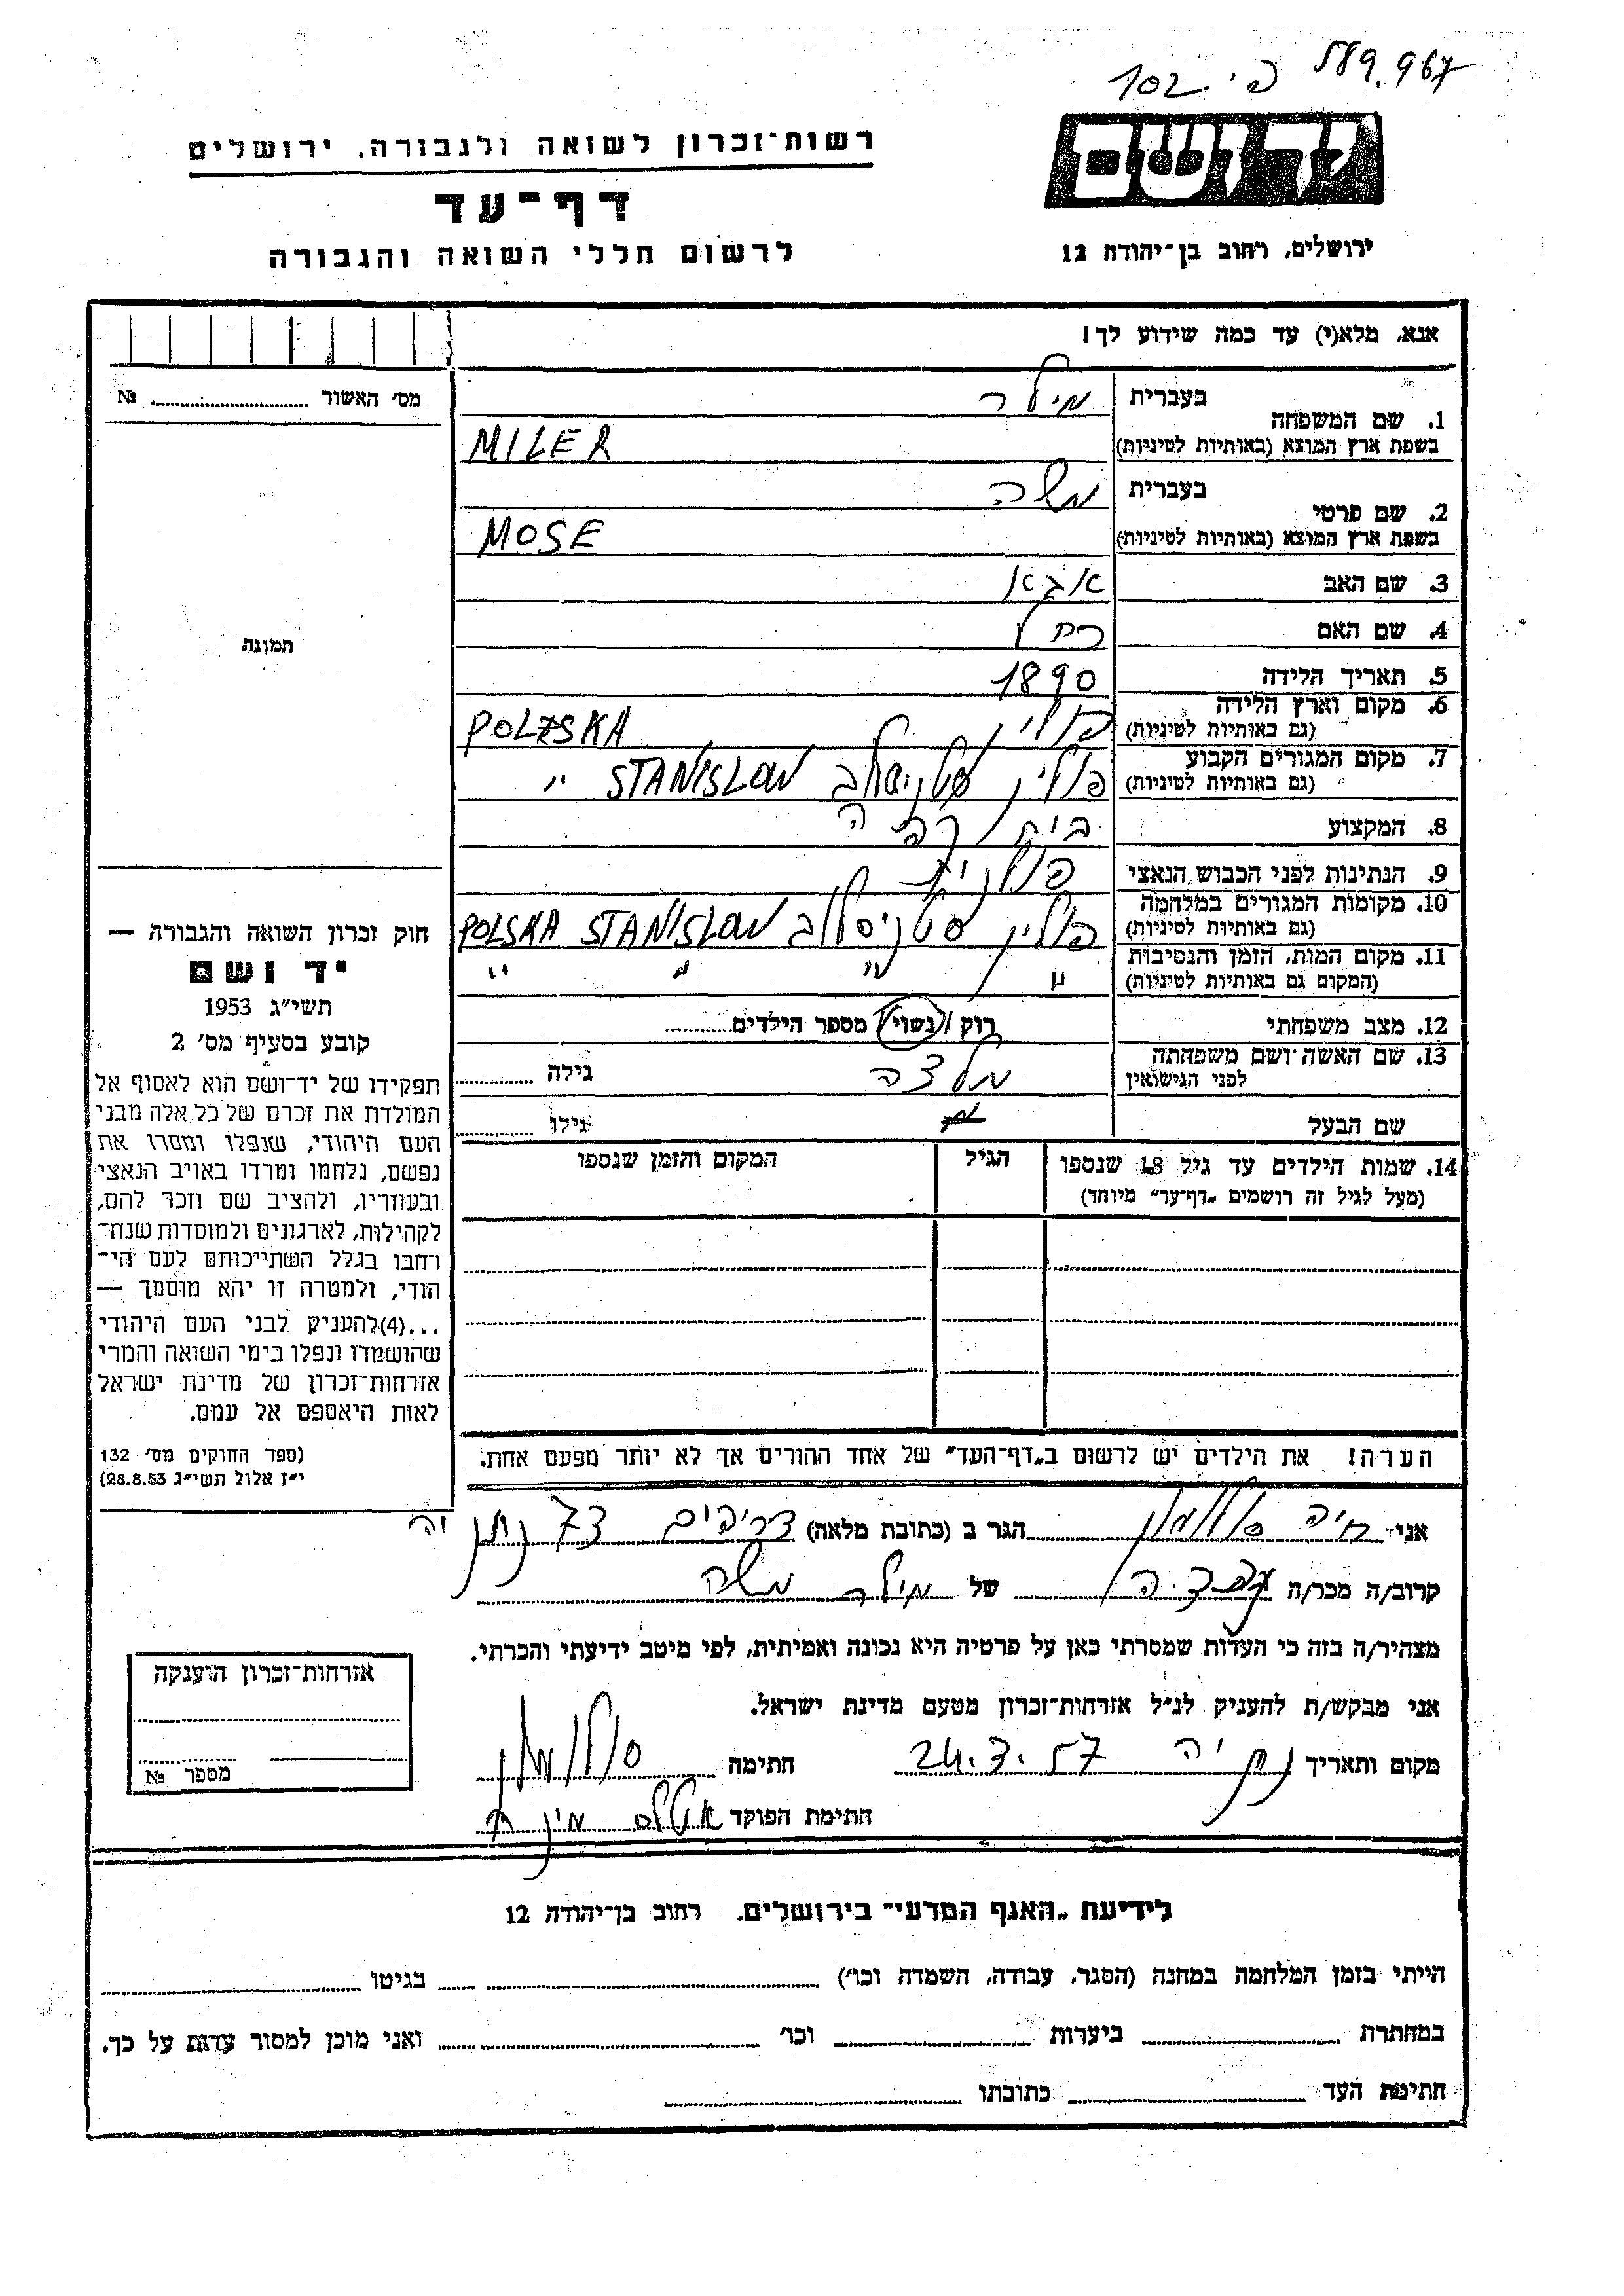 589.967 פ׳ 102
יד ושם
ירושלים, רחוב בן־יהודה 12
רשות־זכרון לשואה ולגבורה, ירושלים
דף־עד
לרשום חללי השואה והגבורה
אנא, מלא(י) עד כמה שידוע לך!
1. שם המשפחה בעברית מילר
בשפת ארץ המוצא (באותיות לטיניות) MILER
2. שם פרטי בעברית משה
בשפת ארץ המוצא (באותיות לטיניות) MOSE
3. שם האב אבא
4. שם האם רחל
5. תאריך הלידה 1890
6. מקום וארץ הלידה פולין POLSKA
(גם באותיות לטיניות)
7. מקום המגורים הקבוע פולין סטניסלב STANISLOW "
(גם באותיות לטיניות)
8. המקצוע
9. הנתינות לפני הכבוש הנאצי פולנית
10. מקומות המגורים במלחמה פולין סטניסלב POLSKA STANISLOW
(גם באותיות לטיניות)
11. מקום המות, הזמן והנסיבות " " " "
(המקום גם באותיות לטיניות)
12. מצב משפחתי רוק / נשוי / מספר הילדים
13. שם האשה ושם משפחתה מלצה גילה
לפני הנישואין
שם הבעל גילו
14. שמות הילדים עד גיל 18 שנספו הגיל המקום והזמן שנספו
(מעל לגיל זה רושמים „דף־עד״ מיוחד)
הערה! את הילדים יש לרשום ב„דף־העד״ של אחד ההורים אך לא יותר מפעם אחת.
מס׳ האשור №
תמונה
חוק זכרון השואה והגבורה —
יד ושם
תשי״ג 1953
קובע בסעיף מס׳ 2
תפקידו של יד־ושם הוא לאסוף אל
המולדת את זכרם של כל אלה מבני
העם היהודי, שנפלו ומסרו את
נפשם, נלחמו ומרדו באויב הנאצי
ובעוזריו, ולהציב שם וזכר להם,
לקהילות, לארגונים ולמוסדות שנח־
רחבו בגלל השתייכותם לעם הי־
הודי, ולמטרה זו יהא מוסמך —
...(4)להעניק לבני העם היהודי
שהושמדו ונפלו בימי השואה והמרי
אזרחות־זכרון של מדינת ישראל
לאות היאספם אל עמם.
(ספר החוקים מס׳ 132
י״ז אלול תשי״ג 28.8.53)
אני חיה סולומון הגר ב (כתובת מלאה) צריפים 73 נתניה
קרוב/ה מכר/ה של מילר משה
מצהיר/ה בזה כי העדות שמסרתי כאן על פרטיה היא נכונה ואמיתית, לפי מיטב ידיעתי והכרתי.
אני מבקש/ת להעניק לנ״ל אזרחות־זכרון מטעם מדינת ישראל.
מקום ותאריך נתניה 24.3.57 חתימה סולומון
חתימת הפוקד
אזרחות־זכרון הוענקה
מספר №
לידיעת „האגף המדעי״ בירושלים, רחוב בן־יהודה 12
הייתי בזמן המלחמה במחנה (הסגר, עבודה, השמדה וכו׳) בגיטו
במחתרת ביערות וכו׳ ואני מוכן למסור עדות על כך.
חתימת העד כתובתו